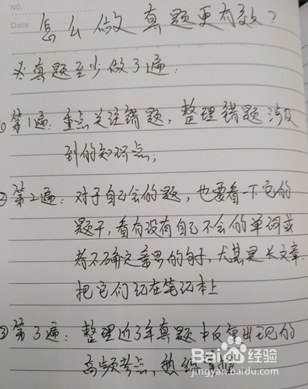 NO.
Date
怎么做真题更有效?
真题至少做3遍.
①第1遍:重点关注错题,整理错题涉及
到的知识点;
②第2遍:对于自己会的题,也要看一下它的
题干,看有没有自己不会的单词或
者不确定意思的句子,尤其是长文章.
把它们记在笔记本上
③第3遍:整理近3年真题中的出现的
高频考点,熟
Baidu 经验
jingyan.baidu.com